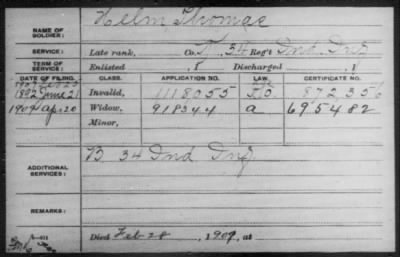 NAME OF SOLDIER: Helm Thomas
SERVICE: Late rank, Co. 34 Reg't Ind Inf
TERM OF SERVICE: Enlisted , 8 Discharged , 1
DATE OF FILING. CLASS. APPLICATION NO. LAW. CERTIFICATE NO.
1892 June 21 Invalid, 1118055
1909 Apr 20 Widow, 918344 a 695482
Minor,
B 34 Ind Inf
ADDITIONAL SERVICES:
REMARKS:
Died Feb 28, 1909, at